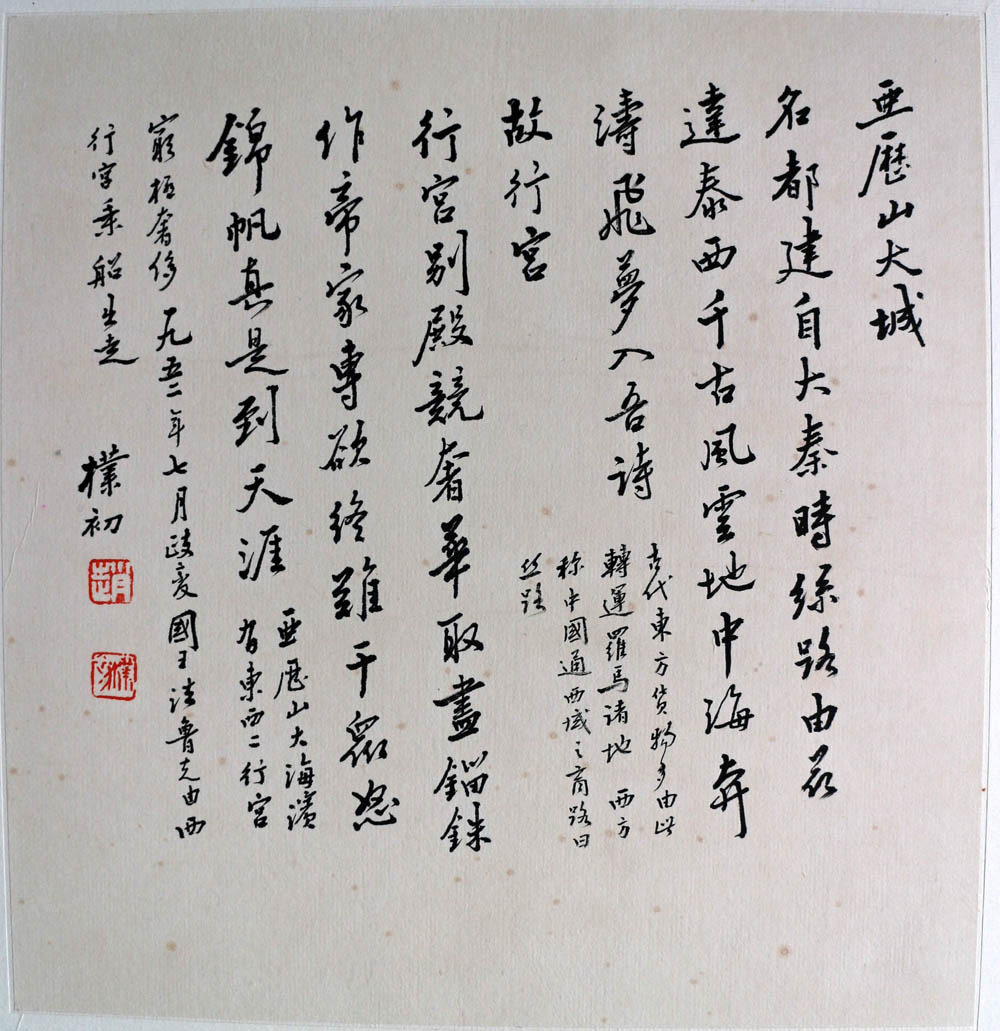 亜歷山大城
名都建自大秦時絲路由茲
達泰西千古風雲地中海奔
濤飛夢入吾詩
古代東方货物多由此
轉運羅馬諸地 西方
称中國通西域之商路曰
丝路
故行宮
行宮别殿競奢華取盡錙銖
作帝家專欲終難干衆怒
錦帆真是到天涯
亜歷山大海濱
有東西二行宮
窮極奢侈 一九五二年七月政变國王法魯克由西
行宮乘船出走
樸初
趙
樸初